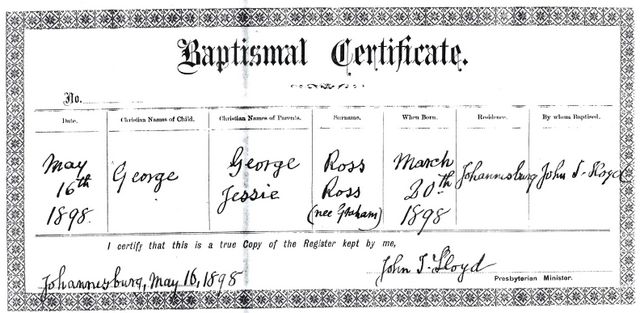 Baptismal Certificate.
No.
Date. Christian Names of Child. Christian Names of Parents. Surname. When Born. Residence. By whom Baptised.
May 16th 1898.
George
George
Jessie
Ross
Ross
(nee Graham)
March
20th
1898
Johannesburg
John T. Lloyd
I certify that this is a true Copy of the Register kept by me,
John T. Lloyd
Presbyterian Minister.
Johannesburg, May 16, 1898